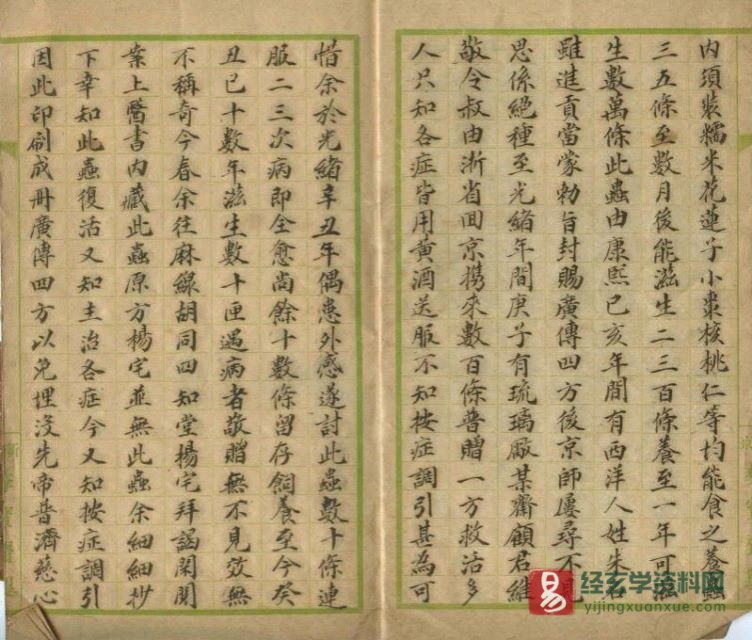 內須裝糯米花蓮子小棗核桃仁等均能食之養蟲
三五條至數月後能滋生二三百條養至一年可滋
生數萬條此蟲由康熙己亥年間有西洋人姓朱名
雖進貢當蒙勅旨封賜廣傳四方後京師屢尋不見
思係絕種至光緒年間庚子有琉璃厰某齋顧君維
敬令叔由浙省回京携來數百條普贈一方救活多
人只知各症皆用黃酒送服不知按症調引甚為可
惜余於光緒辛丑年偶患外感遂討此蟲數十條連
服二三次病即全愈尚餘十數條留存飼養至今癸
丑已十數年滋生數十匣遇病者敬贈無不見效無
不稱奇今春余往麻線胡同四知堂楊宅拜謁閑閱
案上醫書內藏此蟲原方楊宅並無此蟲余細細抄
下幸知此蟲復活又知主治各症今又知按症調引
因此印刷成冊廣傳四方以免埋沒先帝普濟慈心
经玄学资料网
yijingxuanxue.com